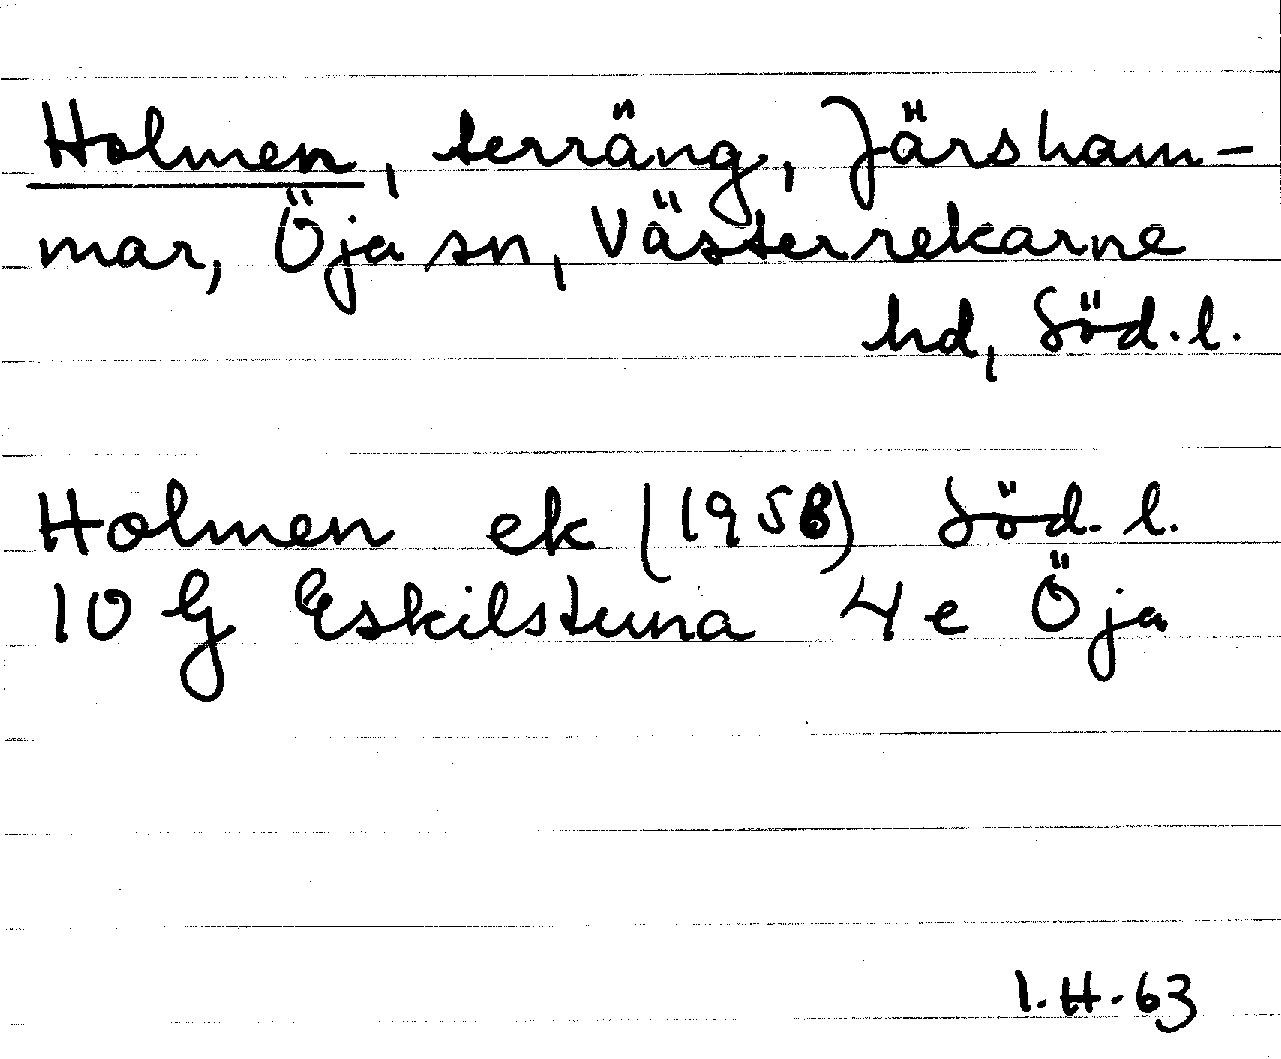 Holmen, terräng, Järsham-
mar, Öja sn, Västerrekarne
hd, Söd.l.
Holmen ek (1958) Söd.l.
10 G Eskilstuna 4e Öja
I.H.63